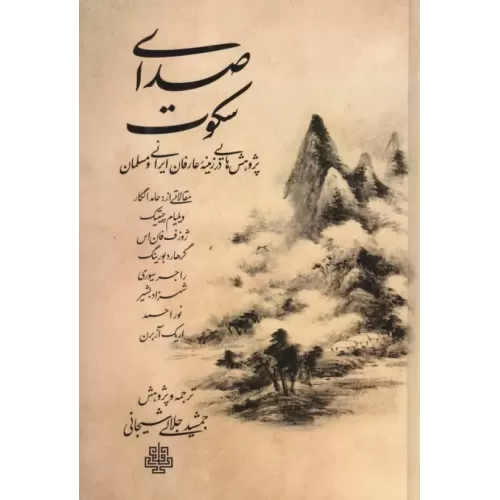 صدای
سکوت
پژوهش‌هایی در زمینهٔ عارفان ایرانی و مسلمان
مقالاتی از: حامد الگار
ویلیام چیتیک
ژوزف فان اس
گرهارد بورینگ
راجر سیوری
شهزاد بشیر
نور احمد
اریک آزبرن
ترجمه و پژوهش
جمشید جلالی شیجانی